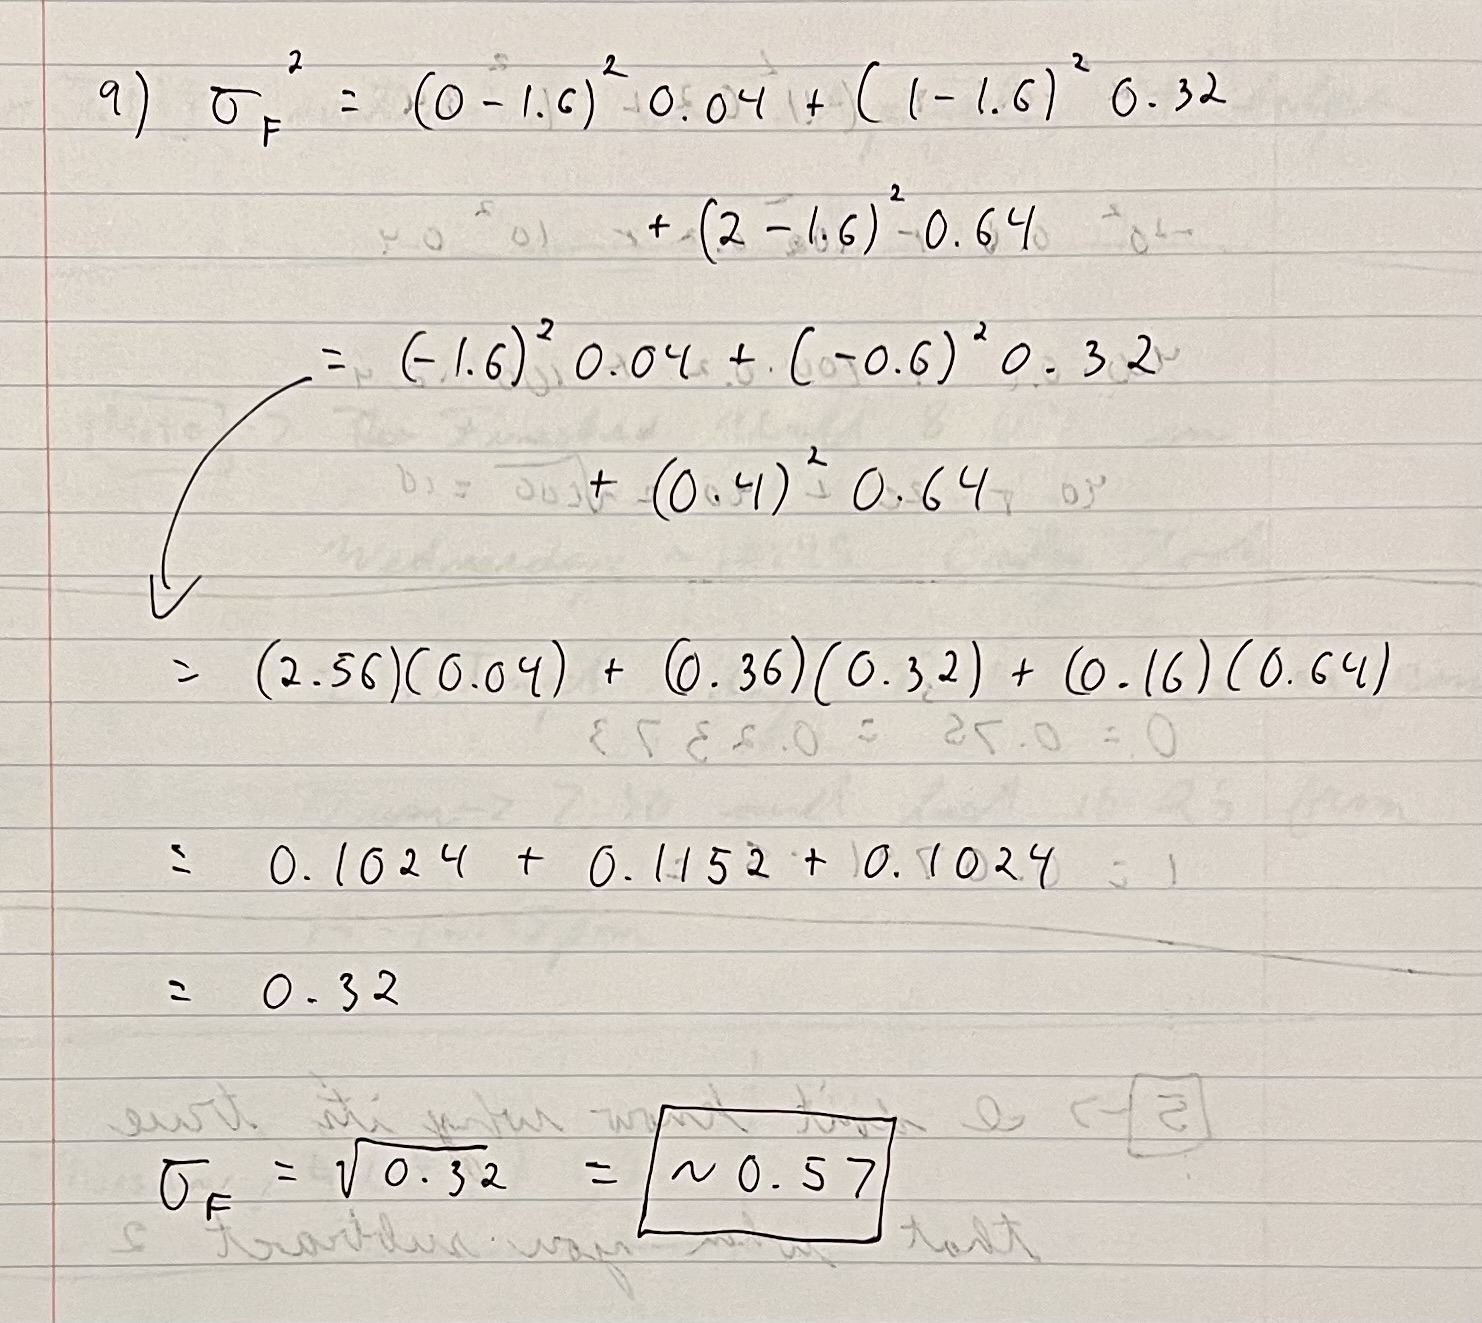 9) σ_F² = (0 - 1.6)² 0.04 + (1 - 1.6)² 0.32
+ (2 - 1.6)² 0.64
= (-1.6)² 0.04 + (-0.6)² 0.32
+ (0.4)² 0.64
= (2.56)(0.04) + (0.36)(0.32) + (0.16)(0.64)
= 0.1024 + 0.1152 + 0.1024
= 0.32
σ_F = √0.32 = ~0.57